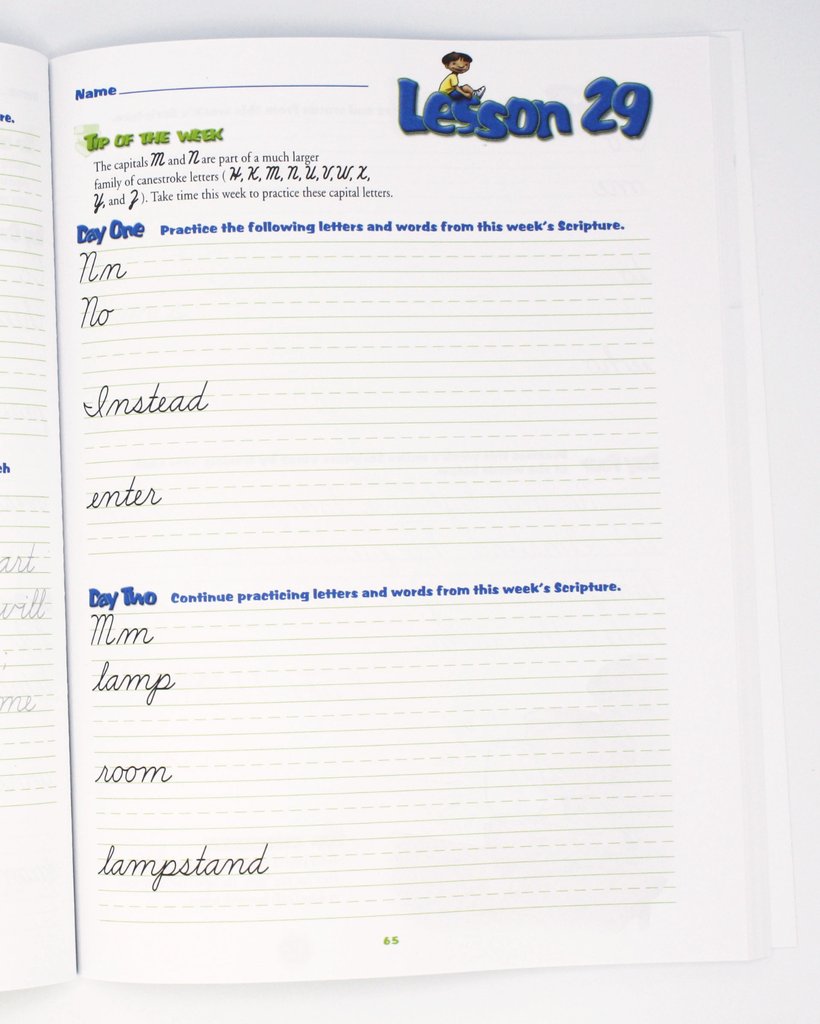 re.
ch
art
will
;
me
Name
Lesson 29
TIP OF THE WEEK
The capitals M and N are part of a much larger
family of canestroke letters ( H, K, M, N, U, V, W, X,
Y, and Z ). Take time this week to practice these capital letters.
Day One Practice the following letters and words from this week's Scripture.
Nn
No
Instead
enter
Day Two Continue practicing letters and words from this week's Scripture.
Mm
lamp
room
lampstand
65